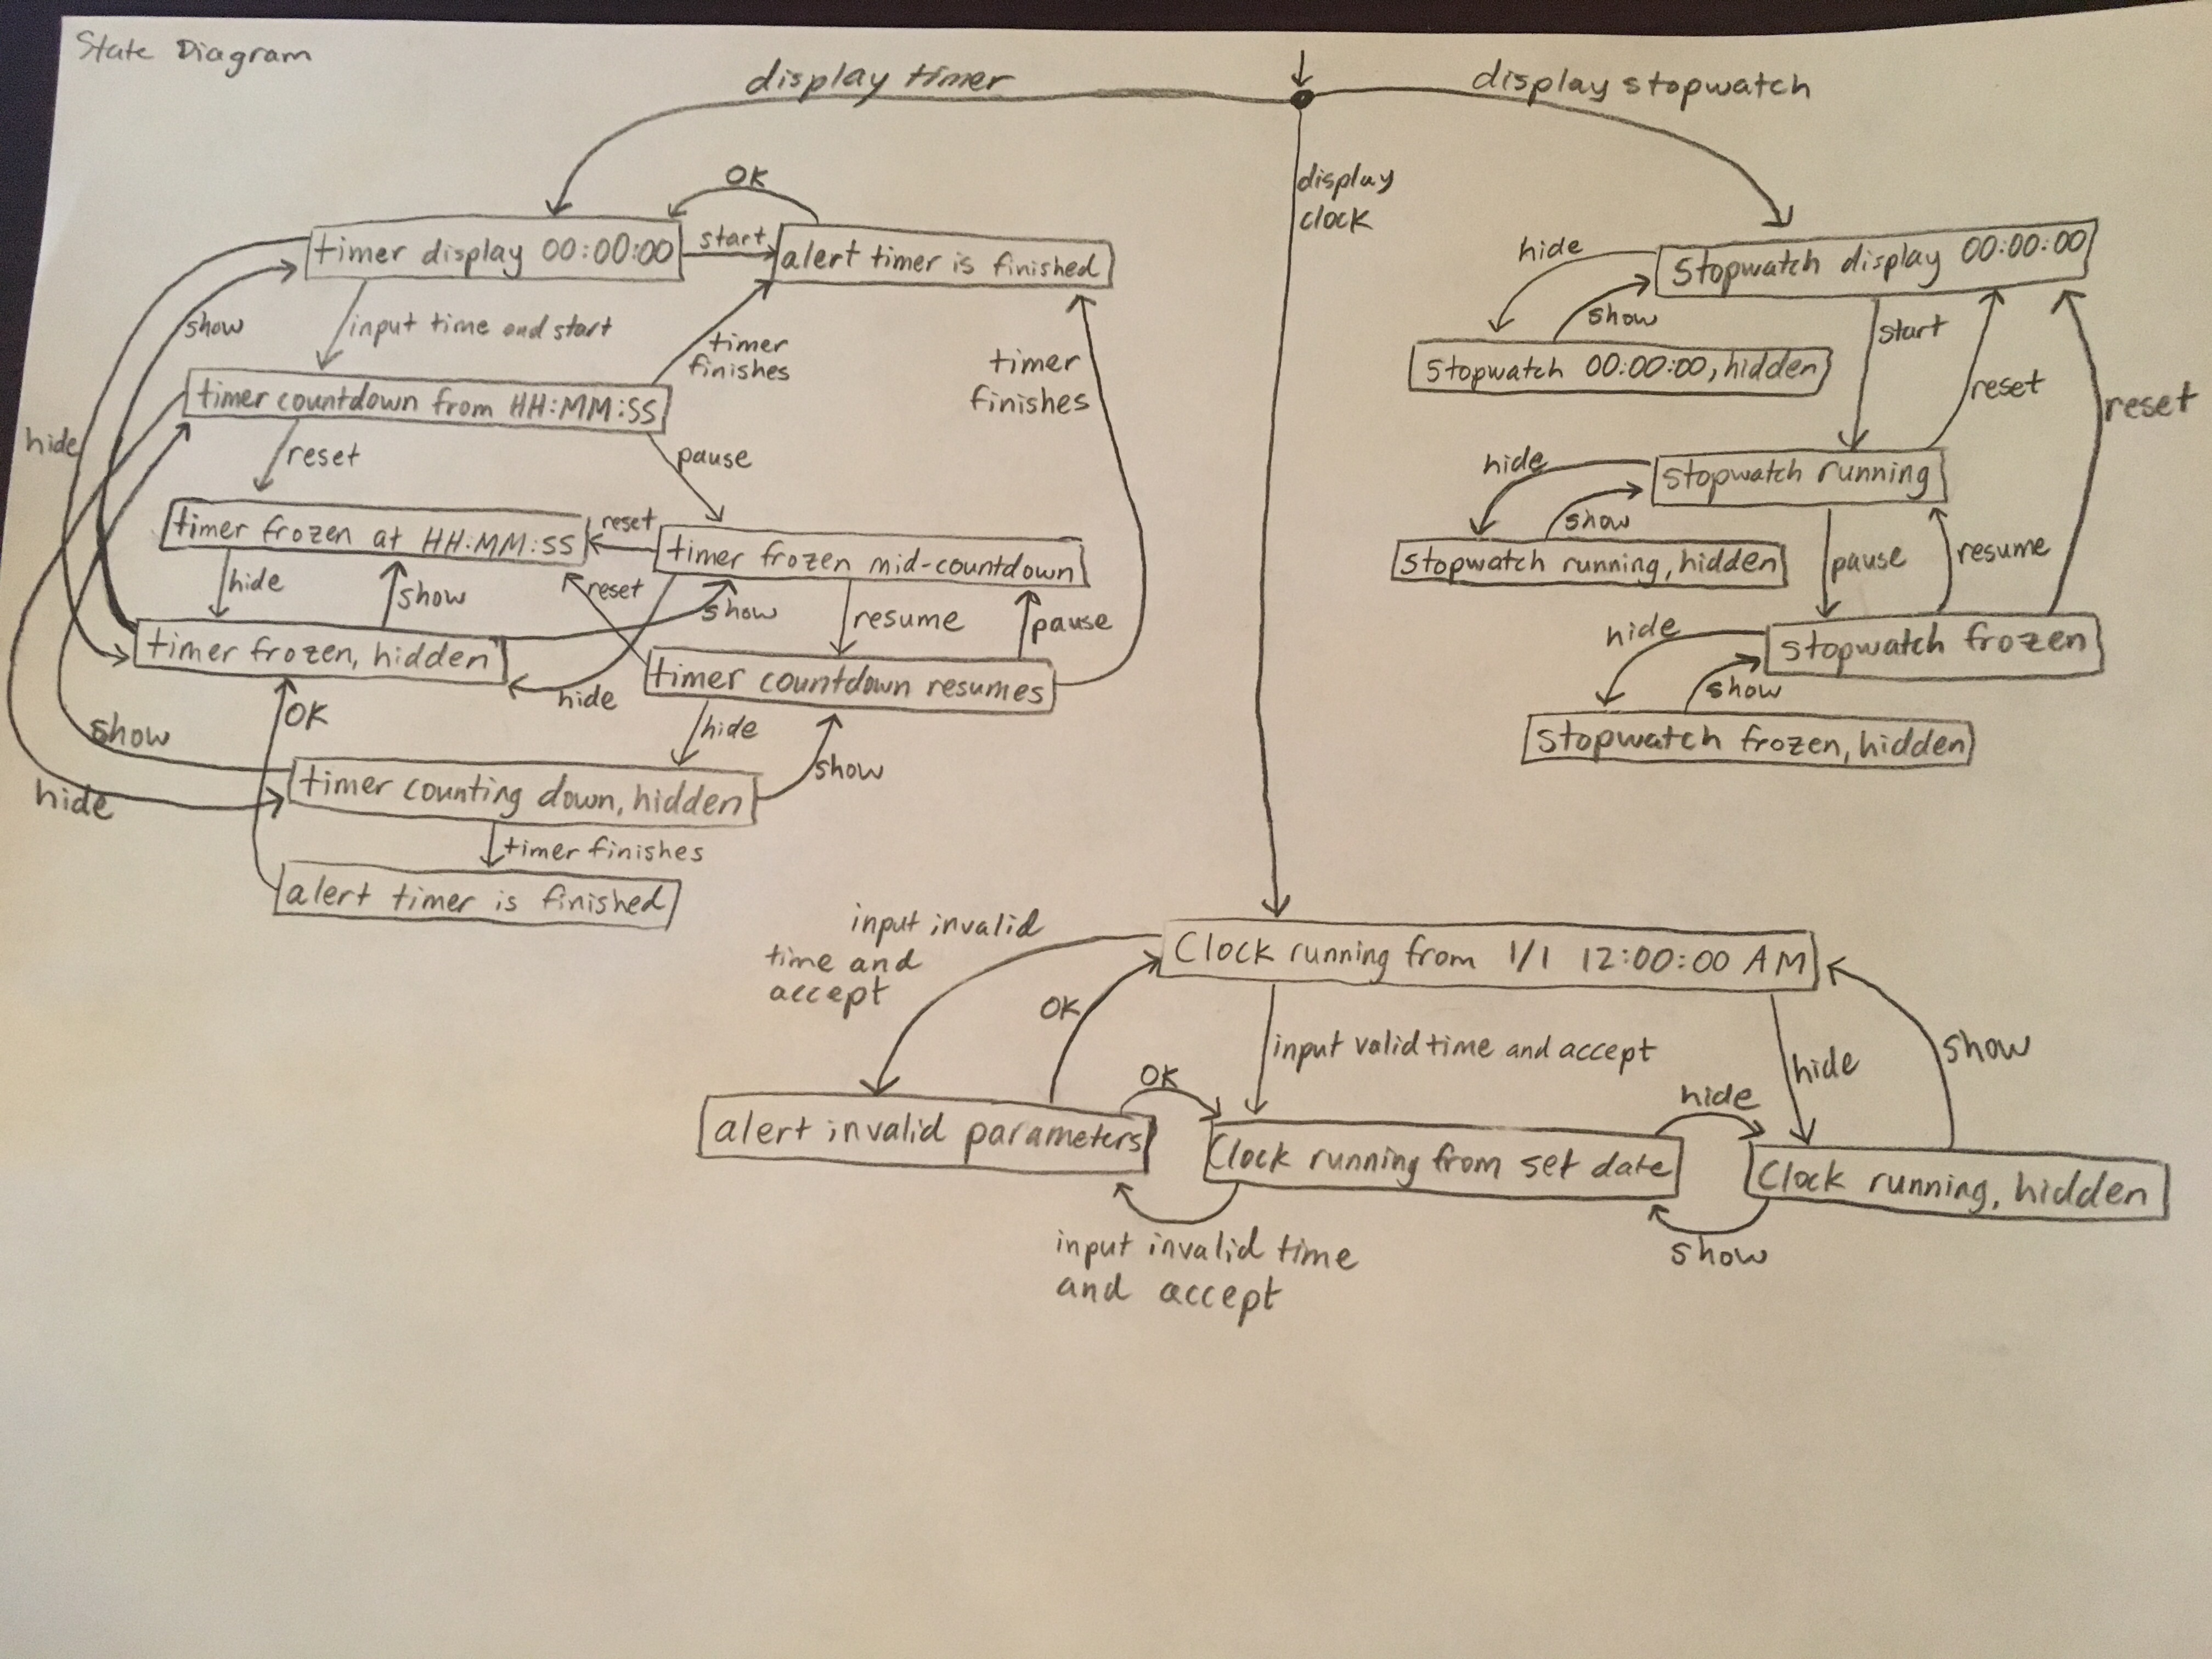 State Diagram
display timer
display stopwatch
display
clock
OK
timer display 00:00:00
start
alert timer is finished
show
input time and start
timer
finishes
timer
finishes
hide
timer countdown from HH:MM:SS
reset
pause
timer frozen at HH:MM:SS
reset
timer frozen mid-countdown
hide
show
reset
show
resume
pause
timer frozen, hidden
hide
timer countdown resumes
OK
hide
show
show
hide
timer counting down, hidden
timer finishes
alert timer is finished
hide
Stopwatch display 00:00:00
show
start
Stopwatch 00:00:00, hidden
reset
reset
hide
stopwatch running
show
stopwatch running, hidden
pause
resume
hide
stopwatch frozen
show
stopwatch frozen, hidden
input invalid
time and
accept
Clock running from 1/1 12:00:00 AM
OK
input valid time and accept
hide
show
OK
hide
alert invalid parameters
Clock running from set date
Clock running, hidden
input invalid time
and accept
show